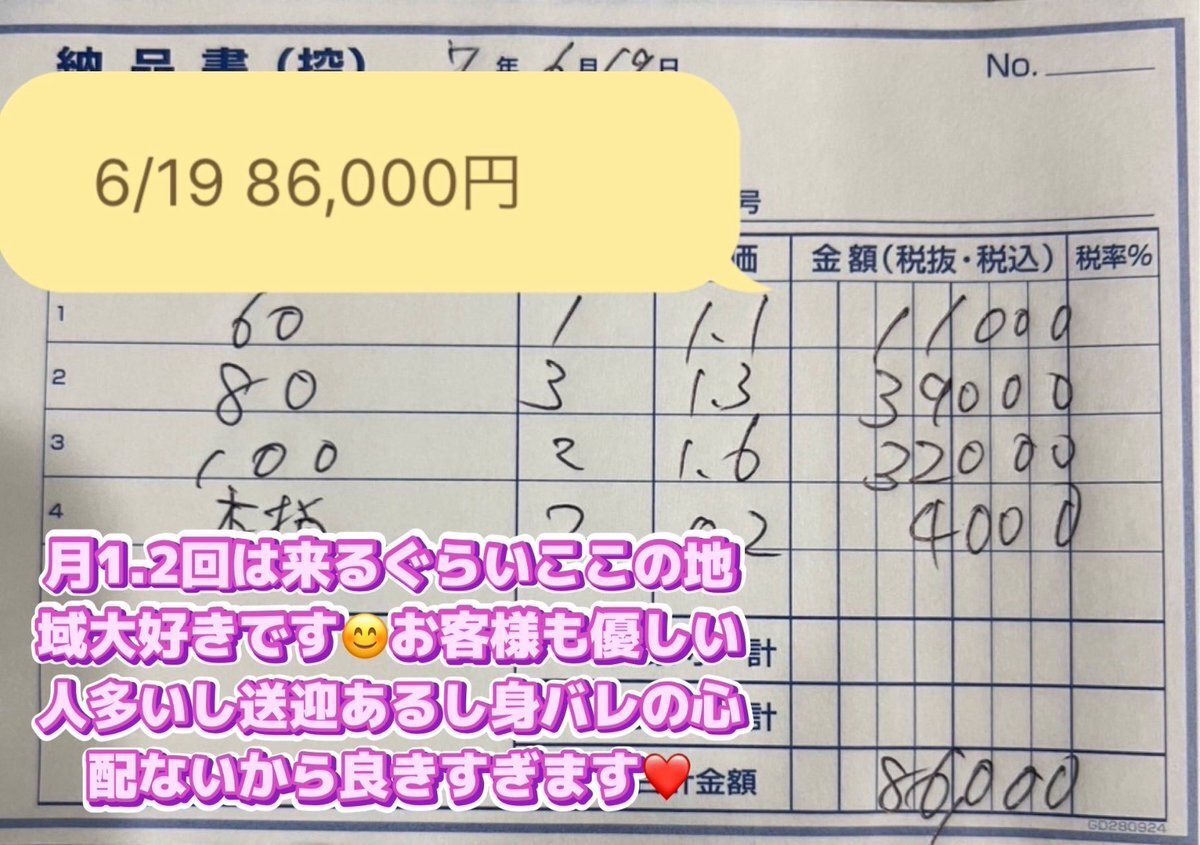 納品書(控) 7年6月19日 No.
6/19 86,000円
号
価 金額(税抜・税込) 税率%
1 60 1 1.1 11000
2 80 3 1.3 39000
3 100 2 1.6 32000
4 本指 2 0.2 4000
月1.2回は来るぐらいここの地
域大好きです😊お客様も優しい
計
人多いし送迎あるし身バレの心
計
配ないから良きすぎます❤️
計金額 86,000
GD280924